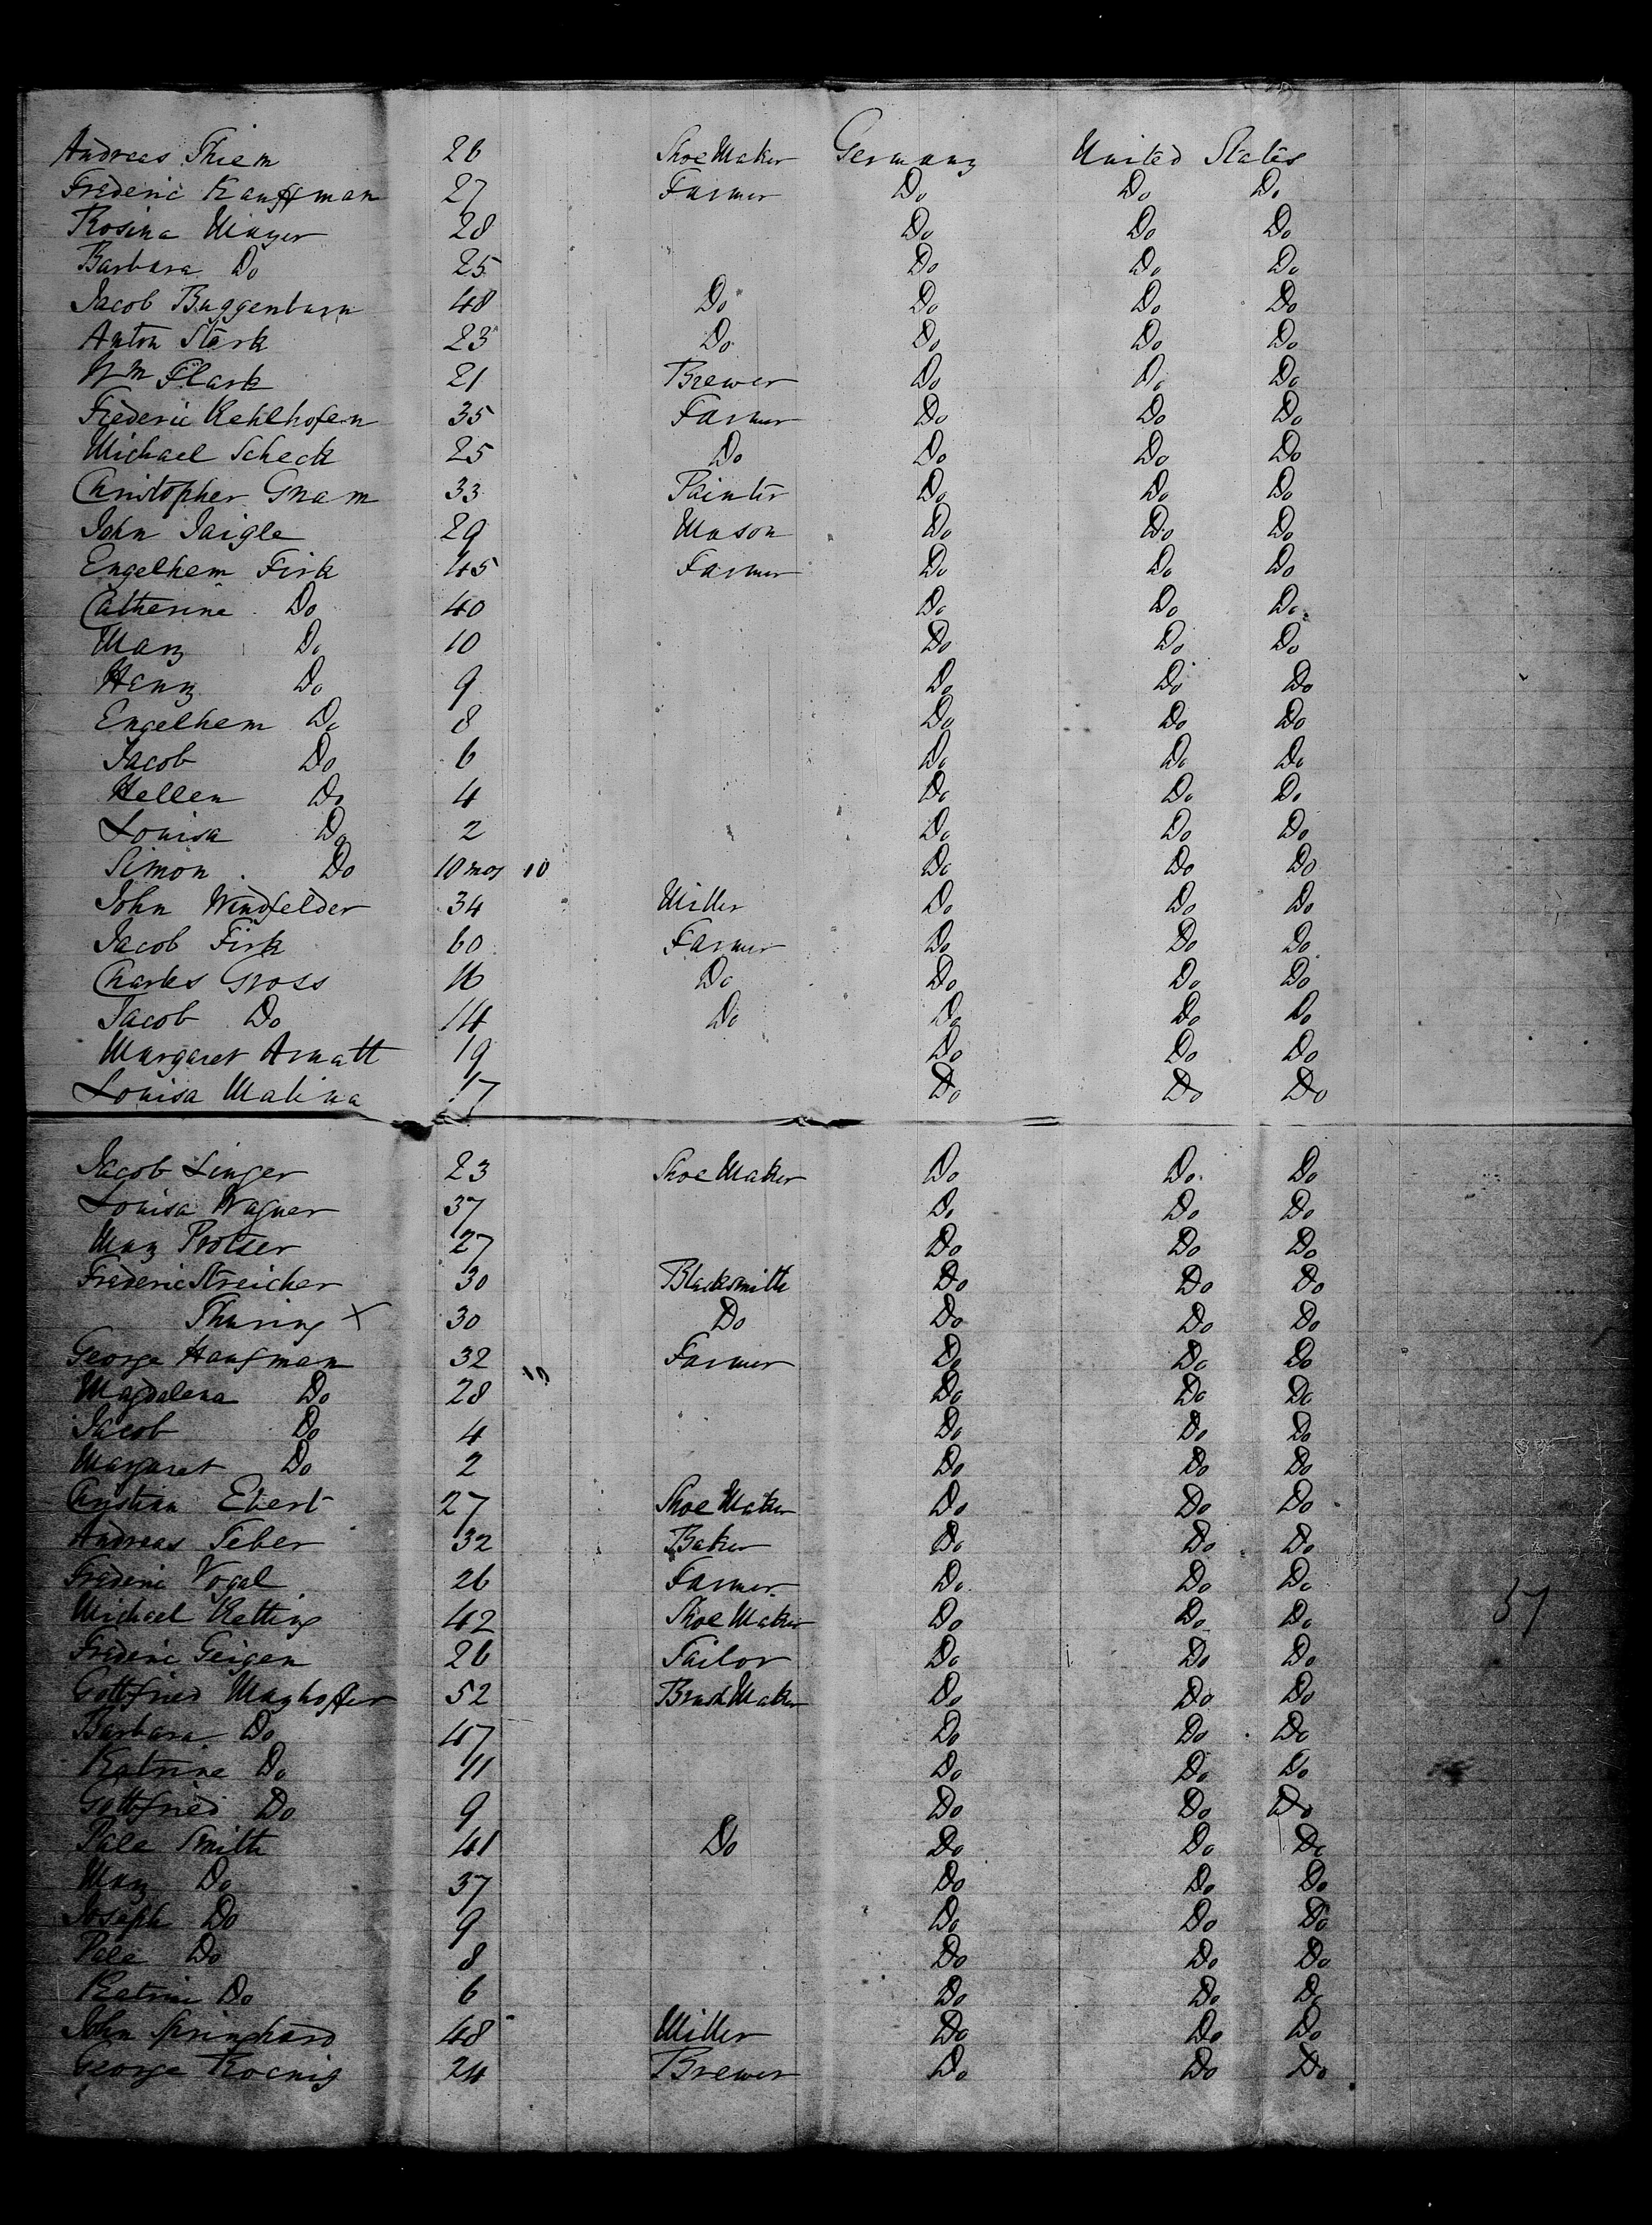 Andreas Thiem 26 Shoe Maker Germany United States
Frederic Kauffman 27 Farmer Do Do Do
Rosina Mayer 28 Do Do Do
Barbara Do 25 Do Do Do
Jacob Buggenburn 48 Do Do Do Do
Anton Stark 23 Do Do Do Do
Wm Flark 21 Brewer Do Do Do
Frederic Kehlhofen 35 Farmer Do Do Do
Michael Scheck 25 Do Do Do Do
Christopher Gnam 33 Painter Do Do Do
John Jaigle 29 Mason Do Do Do
Engelhem Firk 45 Farmer Do Do Do
Catherine Do 40 Do Do Do
Mary Do 10 Do Do Do
Henry Do 9 Do Do Do
Engelhem Do 8 Do Do Do
Jacob Do 6 Do Do Do
Hellen Do 4 Do Do Do
Louisa Do 2 Do Do Do
Simon Do 10 mos 10 Do Do Do
John Windfelder 34 Miller Do Do Do
Jacob Firk 60 Farmer Do Do Do
Charles Gross 16 Do Do Do Do
Jacob Do 14 Do Do Do Do
Margaret Arnatt 19 Do Do Do
Louisa Malina 17 Do Do Do
Jacob Linger 23 Shoe Maker Do Do Do
Louisa Wagner 37 Do Do Do
Mary Protser 27 Do Do Do
Frederic Streicher 30 Blacksmith Do Do Do
Thuring X 30 Do Do Do Do
George Haufman 32 Farmer Do Do Do
Magdalena Do 28 10 Do Do Do
Jacob Do 4 Do Do Do
Margaret Do 2 Do Do Do
Christian Ebert 27 Shoe Maker Do Do Do
Andreas Feber 32 Baker Do Do Do
Frederic Vogal 26 Farmer Do Do Do
Michael Ketting 42 Shoe Maker Do Do Do 57
Frederic Geigen 26 Tailor Do Do Do
Gottfried Mayhoffer 52 Brush Maker Do Do Do
Barbara Do 47 Do Do Do
Katrine Do 11 Do Do Do
Gottfried Do 9 Do Do Do
Pale Smith 41 Do Do Do Do
Mary Do 37 Do Do Do
Joseph Do 9 Do Do Do
Pale Do 8 Do Do Do
Katrin Do 6 Do Do Do
John Springhard 48 Miller Do Do Do
George Koenig 24 Brewer Do Do Do